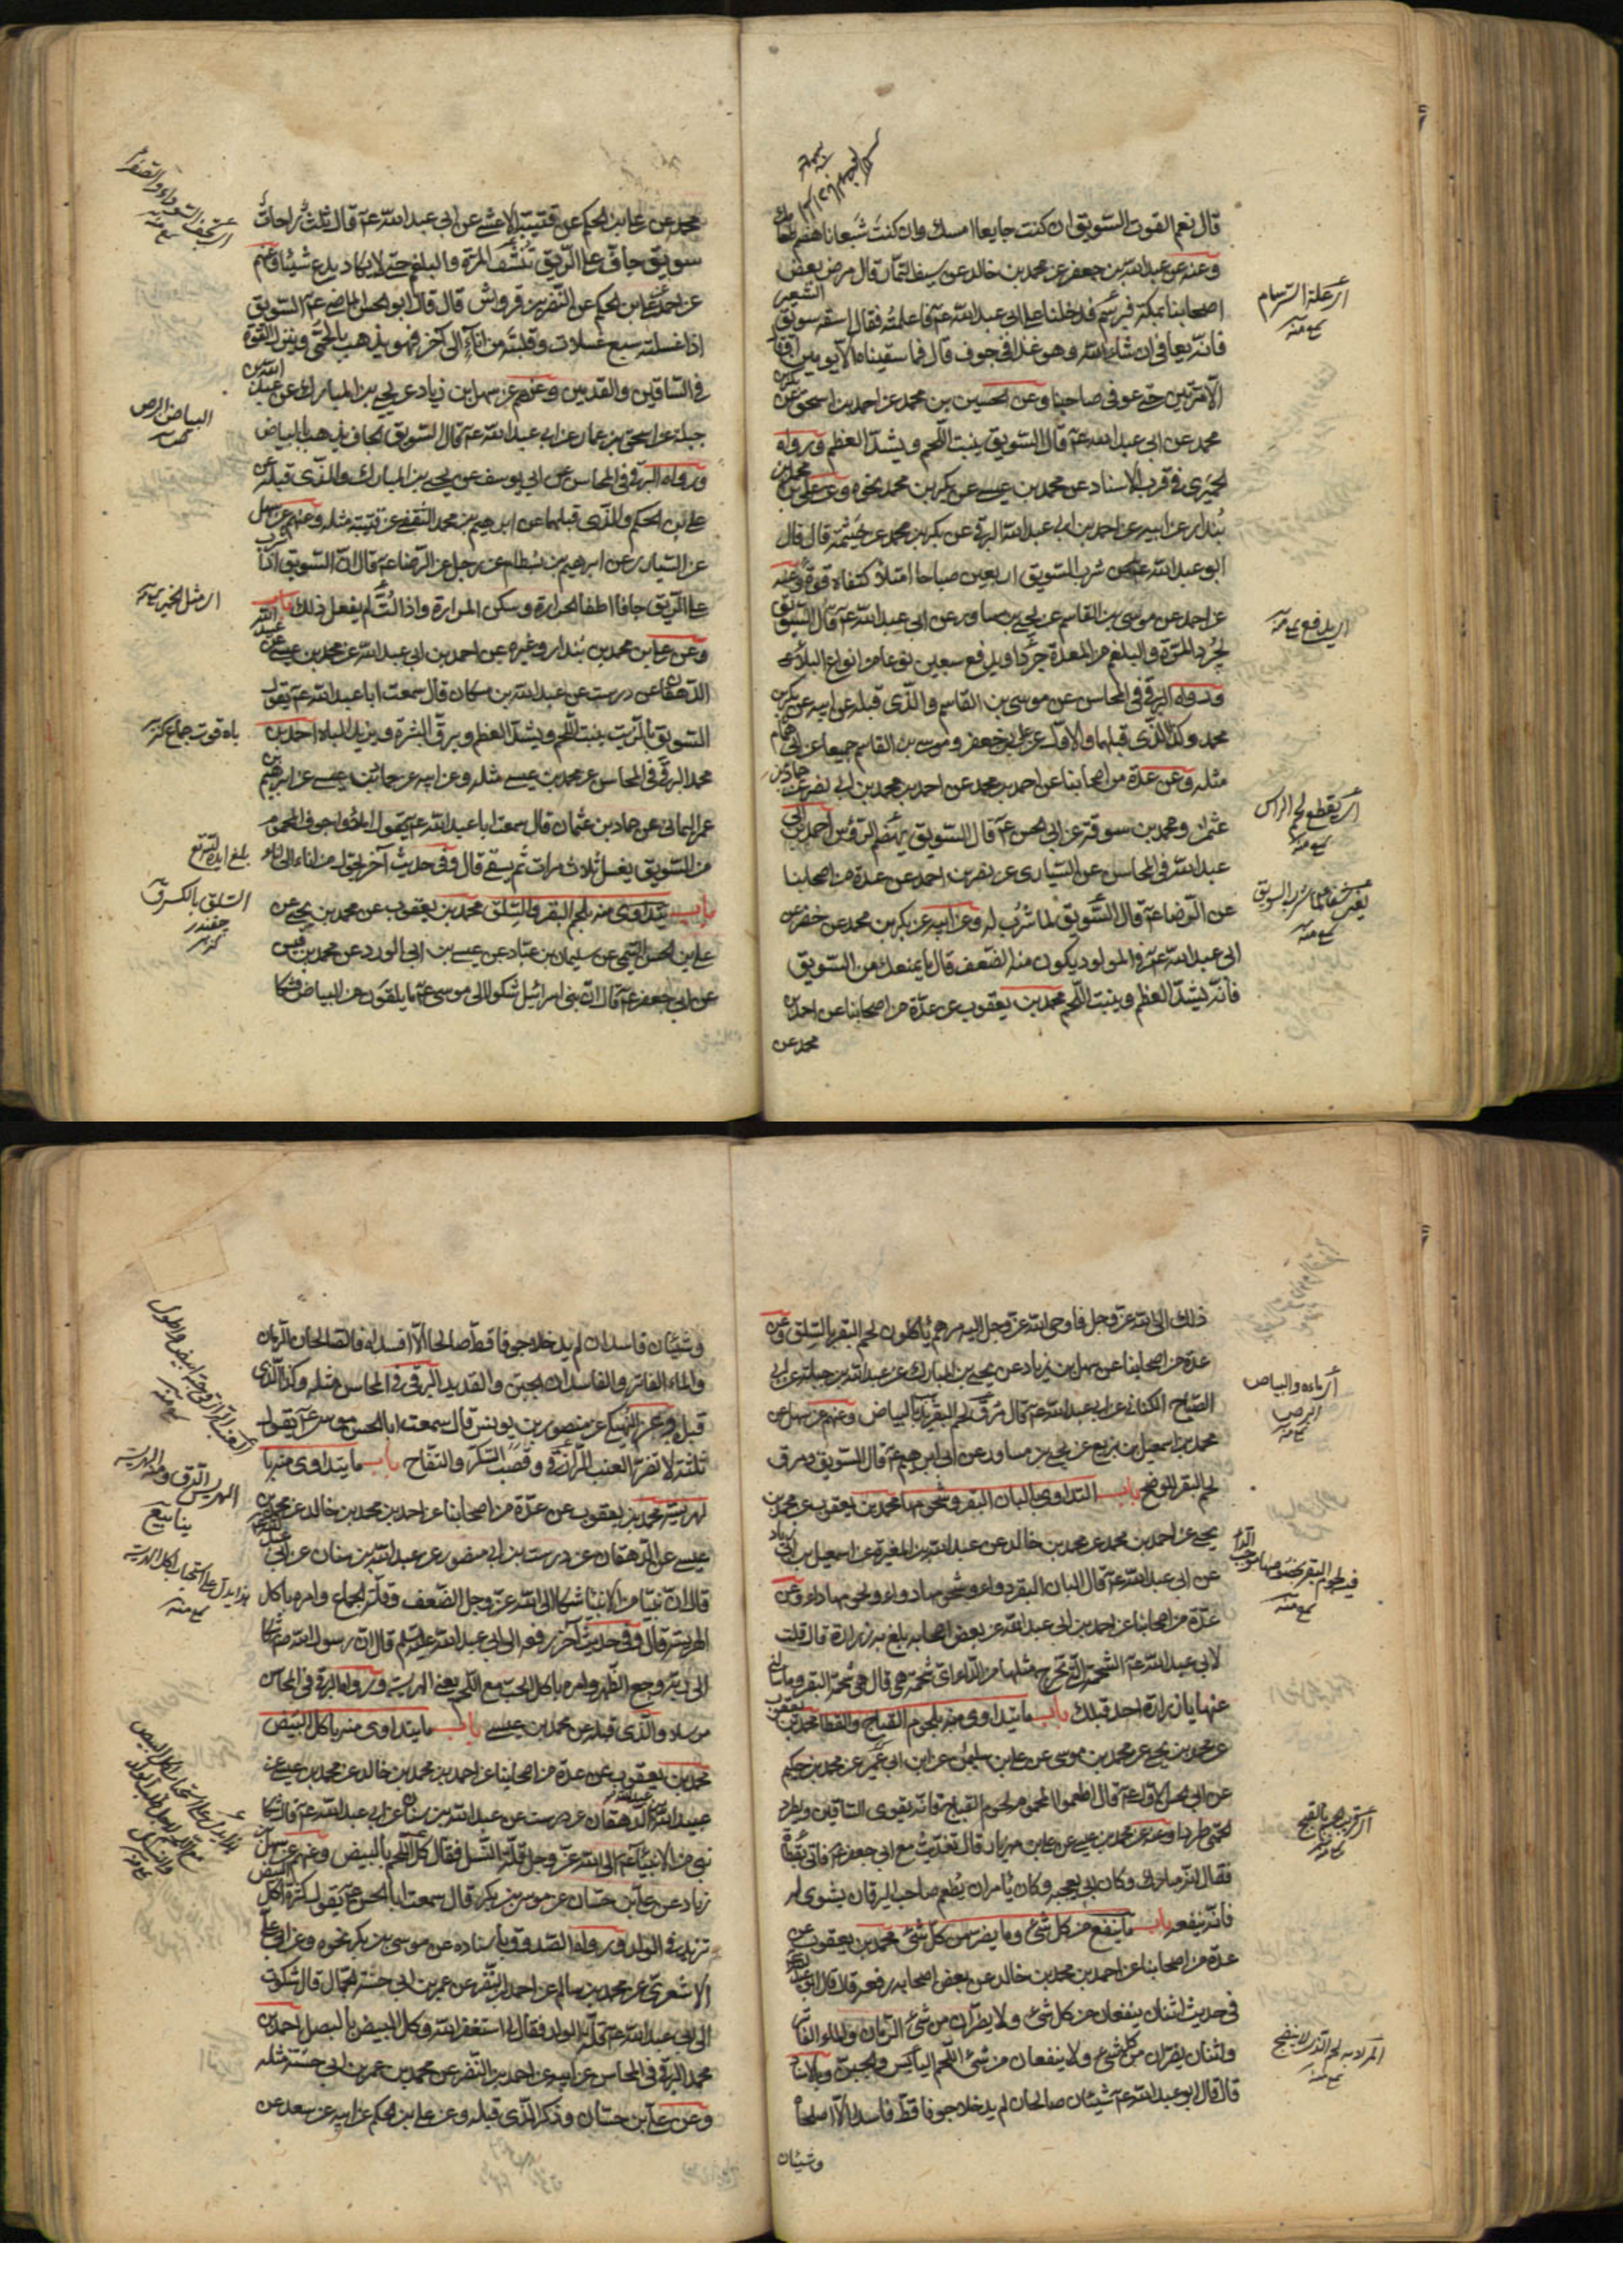 قال نعم القوت السويق ان كنت جايعا امسك وان كنت شبعانا هضم طعامك
وعنه عن عبد الله بن جعفر عن محمد بن خالد عن سيف التمار قال مرض بعض
اصحابنا بمكة فبرسم فدخلنا على ابى عبد الله عم فاعلمته فقال اسقه سويق الشعير
فانه يعافى ان شاء الله وهو غذا فى جوف قال فما سقيناه الا يومين او قال
الا مرتين حتى عوفى صاحبنا وعن الحسين بن محمد عن احمد بن اسحق عن بكر بن
محمد عن ابى عبد الله عم قال السويق ينبت اللحم ويشد العظم ورواه
الحميرى فى قرب الاسناد عن محمد بن عيسى عن بكر بن محمد نحوه وعن على بن محمد بن
بندار عن ابيه عن احمد بن ابى عبد الله البرقى عن بكر بن محمد عن خيثمة قال قال
ابو عبد الله عم من شرب السويق اربعين صباحا امتلأ كتفاه قوة وعنه
عن احمد عن موسى بن القاسم عن يحيى بن مساور عن ابى عبد الله عم قال السويق
يجرد المرة والبلغم من المعدة جردا ويدفع سبعين نوعا من انواع البلاء
ورواه البرقى فى المحاسن عن موسى بن القاسم والذى قبله عن ابيه عن بكر بن
محمد وكذا الذى قبلهما والاول عن على بن جعفر وموسى بن القاسم جميعا عن ابى همام
مثله وعن عدة من اصحابنا عن احمد بن محمد عن احمد بن محمد بن ابى نصر عن حماد بن
عثمان ومحمد بن سوقة عن ابى الحسن عم قال السويق يهضم الرؤس احمد بن ابى
عبد الله فى المحاسن عن السيارى عن نصر بن احمد عن عدة من اصحابنا
عن الرضا عم قال السويق لما شرب له وعن ابيه عن بكر بن محمد عن خضر عن
ابى عبد الله عم فى المولود يكون منه الضعف قال ما يمنعك من السويق
فانه يشد العظم وينبت اللحم محمد بن يعقوب عن عدة من اصحابنا عن احمد بن
محمد عن
اى علة السرسام
منه
اى يدفع منه
اى يقطع لحم الراس
منه
يعنى شفاء لما شرب السويق
منه
محمد عن على بن الحكم عن قتيبة الاعشى عن ابى عبد الله عم قال ثلث راحات
سويق جاف على الريق تنشف المرة والبلغم حتى لا يكاد يدع شيئا وعنهم
عن احمد عن على بن الحكم عن النضر بن قرواش قال قال ابو الحسن الماضى عم السويق
اذا غسلته سبع غسلات وقلبته من اناء الى اناء آخر فهو يذهب بالحمى وينزل القوة
فى الساقين والقدمين وعنهم عن سهل بن زياد عن يحيى بن المبارك عن عبد الله بن
جبلة عن اسحق بن عمار عن ابى عبد الله عم قال السويق الجاف يذهب بالبياض
ورواه البرقى فى المحاسن عن ابى يوسف عن يحيى بن المبارك والذى قبله عن
على بن الحكم والذى قبلهما عن ابرهيم بن محمد الثقفى عن قتيبة مثله وعنهم عن سهل
عن السيارى عن ابرهيم بن بسطام عن رجل عن الرضا عم قال ان السويق اذا
على الريق جافا اطفا الحرارة وسكن المرارة واذا لت لم يفعل ذلك باب
وعن على بن محمد بن بندار وغيره عن احمد بن ابى عبد الله عن محمد بن عيسى عن عبيد الله
الدهقان عن درست عن عبد الله بن مسكان قال سمعت ابا عبد الله عم يقول
السويق بالزيت ينبت اللحم ويشد العظم ويرق البشرة ويزيد فى الباه احمد بن
محمد البرقى فى المحاسن عن محمد بن عيسى مثله وعن ابيه عن حماد بن عيسى عن ابرهيم بن
عمر اليمانى عن حماد بن عثمان قال سمعت ابا عبد الله عم يقول املؤا جوف المحموم
من السويق يغسل ثلاث مرات ثم يسقى قال وفى حديث آخر يحول من اناء الى اناء
باب يتداوى منه بلحم البقر والسلق محمد بن يعقوب عن محمد بن يحيى عن
على بن الحسن التيمى عن سليمان بن عباد عن عيسى بن ابى الورد عن محمد بن قيس
عن ابى جعفر عم قال ان بنى اسرائيل شكوا الى موسى عم ما يلقون من البياض فشكا
البياض البرص
منه
باه قوت جماع كنز
السلق بالكسر
چقندر
كنز
ذلك الى الله عز وجل فاوحى الله عز وجل اليه مرهم ياكلون لحم البقر بالسلق وعن
عدة من اصحابنا عن سهل بن زياد عن يحيى بن المبارك عن عبد الله بن جبلة عن ابى
الصباح الكنانى عن ابى عبد الله عم قال مرق لحم البقر يذهب بالبياض وعنهم عن سهل عن
محمد بن اسمعيل بن بزيع عن يحيى بن مساور عن ابى ابرهيم عم قال السويق ومرق
لحم البقر للوضح باب التداوى بالبان البقر وشحومها محمد بن يعقوب عن محمد بن
يحيى عن احمد بن محمد عن محمد بن خالد عن عبد الله بن المغيرة عن اسمعيل بن ابى زياد
عن ابى عبد الله عم قال البان البقر دواء وشحومها دواء ولحومها داء وعن
عدة من اصحابنا عن احمد بن ابى عبد الله عن بعض اصحابه بلغ به زرارة قال قلت
لابى عبد الله عم الشحمة التى تخرج مثلها من الداء اى شحمة هى قال هى شحمة البقر وما سالنى
عنها يا زرارة احد قبلك باب ما يتداوى منه بلحوم القباج والقطا محمد بن يعقوب
عن محمد بن يحيى عن محمد بن موسى عن على بن سليمن عن ابن ابى عمير عن محمد بن حكيم
عن ابى الحسن الاول عم قال اطعموا المحموم لحوم القباج فانه يقوى الساقين ويطرد
الحمى طردا وعنه عن محمد بن عيسى عن على بن مهزيار قال تغديت مع ابى جعفر عم فاتى بقطاة
فقال انه مبارك وكان ابى يعجبه وكان يامر ان يطعم صاحب اليرقان يشوى له
فانه ينفعه باب ما ينفع من كل شئ وما يضر من كل شئ محمد بن يعقوب عن
عدة من اصحابنا عن احمد بن محمد بن خالد عن بعض اصحابه رفعه قال قال ابو عبد الله
فى حديث اثنان ينفعان من كل شئ ولا يضران من شئ الرمان والماء الفاتر
واثنان يضران من كل شئ ولا ينفعان من شئ اللحم اليابس والجبن وبالاسناد
قال قال ابو عبد الله عم شيئان صالحان لم يدخلا جوفا قط فاسدا الا اصلحاه
وشيئان
منه
وشيئان فاسدان لم يدخلا جوفا قط صالحا الا افسداه فالصالحان الرمان
والماء الفاتر والفاسدان الجبن والقديد البرقى فى المحاسن مثله وكذا الذى
قبله وعن النهيكى عن منصور بن يونس قال سمعت ابا الحسن موسى عم يقول
ثلثة لا تضر العنب الرازقى وقصب السكر والتفاح باب ما يتداوى منه با
لهريسة محمد بن يعقوب عن عدة من اصحابنا عن احمد بن محمد بن خالد عن محمد بن
عيسى عن الدهقان عن درست بن ابى منصور عن عبد الله بن سنان عن ابى عبد الله
قال ان نبيا من الانبيا شكا الى الله عز وجل الضعف وقلة الجماع وامره باكل
الهريسة قال وفى حديث آخر رفعه الى ابى عبد الله عليه السلم قال ان رسول الله ص شكا
الى ربه وجع الظهر فامره باكل الحب مع اللحم يعنى الهريسة ورواها البرقى فى المحاسن
مرسلا والذى قبله عن محمد بن عيسى باب ما يتداوى منه باكل البيض
محمد بن يعقوب عن عدة من اصحابنا عن احمد بن محمد بن خالد عن محمد بن عيسى عن
عبيد الله الدهقان عن درست عن عبد الله بن سنان عن ابى عبد الله عم قال شكا
نبى من الانبياء عم الى الله عز وجل قلة النسل فقال كل اللحم بالبيض وعنهم عن سهل بن
زياد عن على بن حسان عن موسى بن بكر قال سمعت ابا الحسن عم يقول كثرة اكل البيض
تزيد فى الولد ورواه الصدوق باسناده عن موسى بن بكر نحوه وعن ابى على
الاشعرى عن محمد بن سالم عن احمد بن النضر عن عمر بن ابى حسنة الجمال قال شكوت
الى ابى عبد الله عم قلة الولد فقال لى استغفر الله وكل البيض بالبصل احمد بن
محمد البرقى فى المحاسن عن ابيه عن احمد بن النضر عن محمد بن عمر بن ابى حسنة مثله
وعن على بن حسان وذكر الذى قبله وعن على بن الحكم عن ابيه عن سعد عن